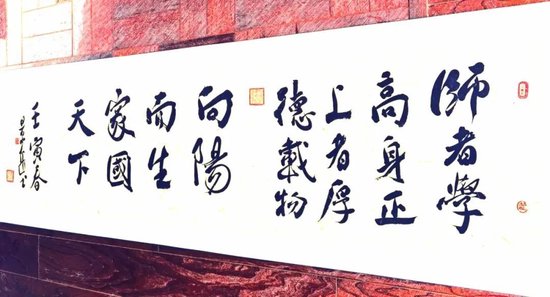 師者學
高身正
上者厚
德載物
向陽
而生
家國
天下
壬寅春